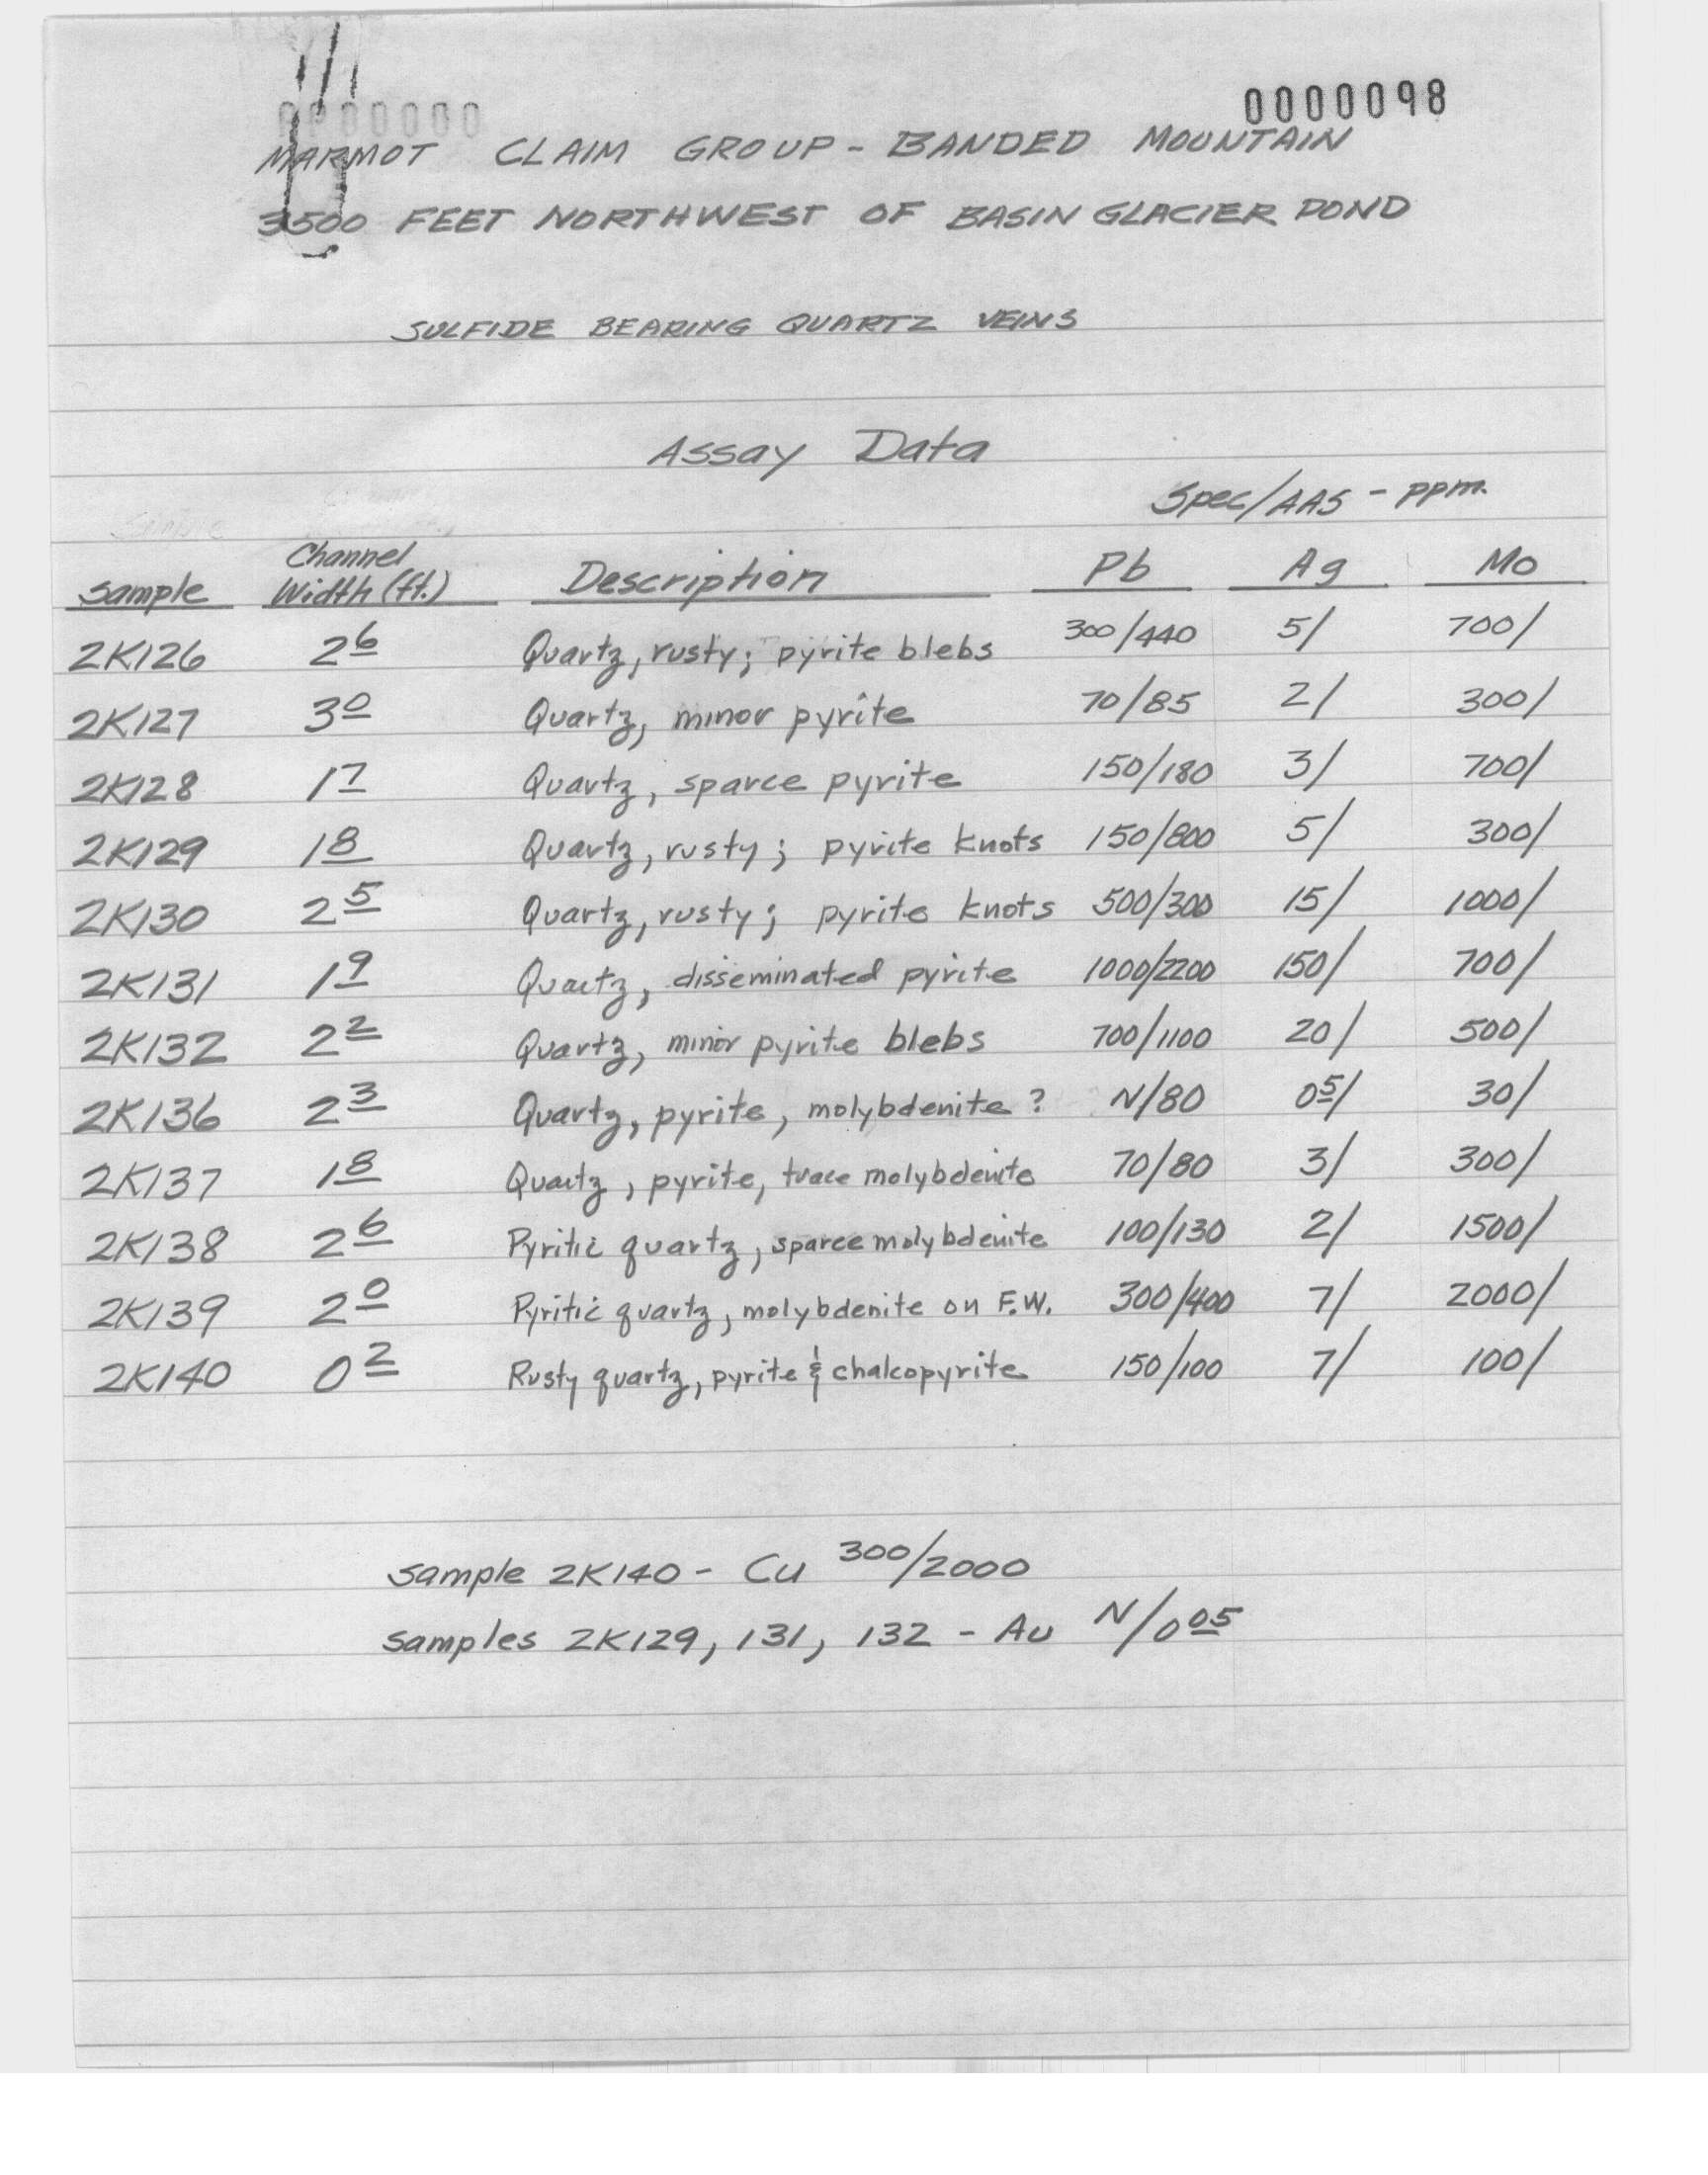 0000000
0000098
MARMOT CLAIM GROUP - BANDED MOUNTAIN
3500 FEET NORTHWEST OF BASIN GLACIER POND
SULFIDE BEARING QUARTZ VEINS
Assay Data
Spec/AAS - ppm.
Sample Channel Width (ft.) Description Pb Ag Mo
2K126 2 6 Quartz, rusty; pyrite blebs 300/440 5/ 700/
2K127 3 0 Quartz, minor pyrite 70/85 2/ 300/
2K128 1 7 Quartz, sparce pyrite 150/180 3/ 700/
2K129 1 8 Quartz, rusty; pyrite knots 150/800 5/ 300/
2K130 2 5 Quartz, rusty; pyrite knots 500/300 15/ 1000/
2K131 1 9 Quartz, disseminated pyrite 1000/2200 150/ 700/
2K132 2 2 Quartz, minor pyrite blebs 700/1100 20/ 500/
2K136 2 3 Quartz, pyrite, molybdenite? N/80 0 5/ 30/
2K137 1 8 Quartz, pyrite, trace molybdenite 70/80 3/ 300/
2K138 2 6 Pyritic quartz, sparce molybdenite 100/130 2/ 1500/
2K139 2 0 Pyritic quartz, molybdenite on F.W. 300/400 7/ 2000/
2K140 0 2 Rusty quartz, pyrite & chalcopyrite 150/100 7/ 100/
Sample 2K140 - Cu 300/2000
Samples 2K129, 131, 132 - Au N/0 05